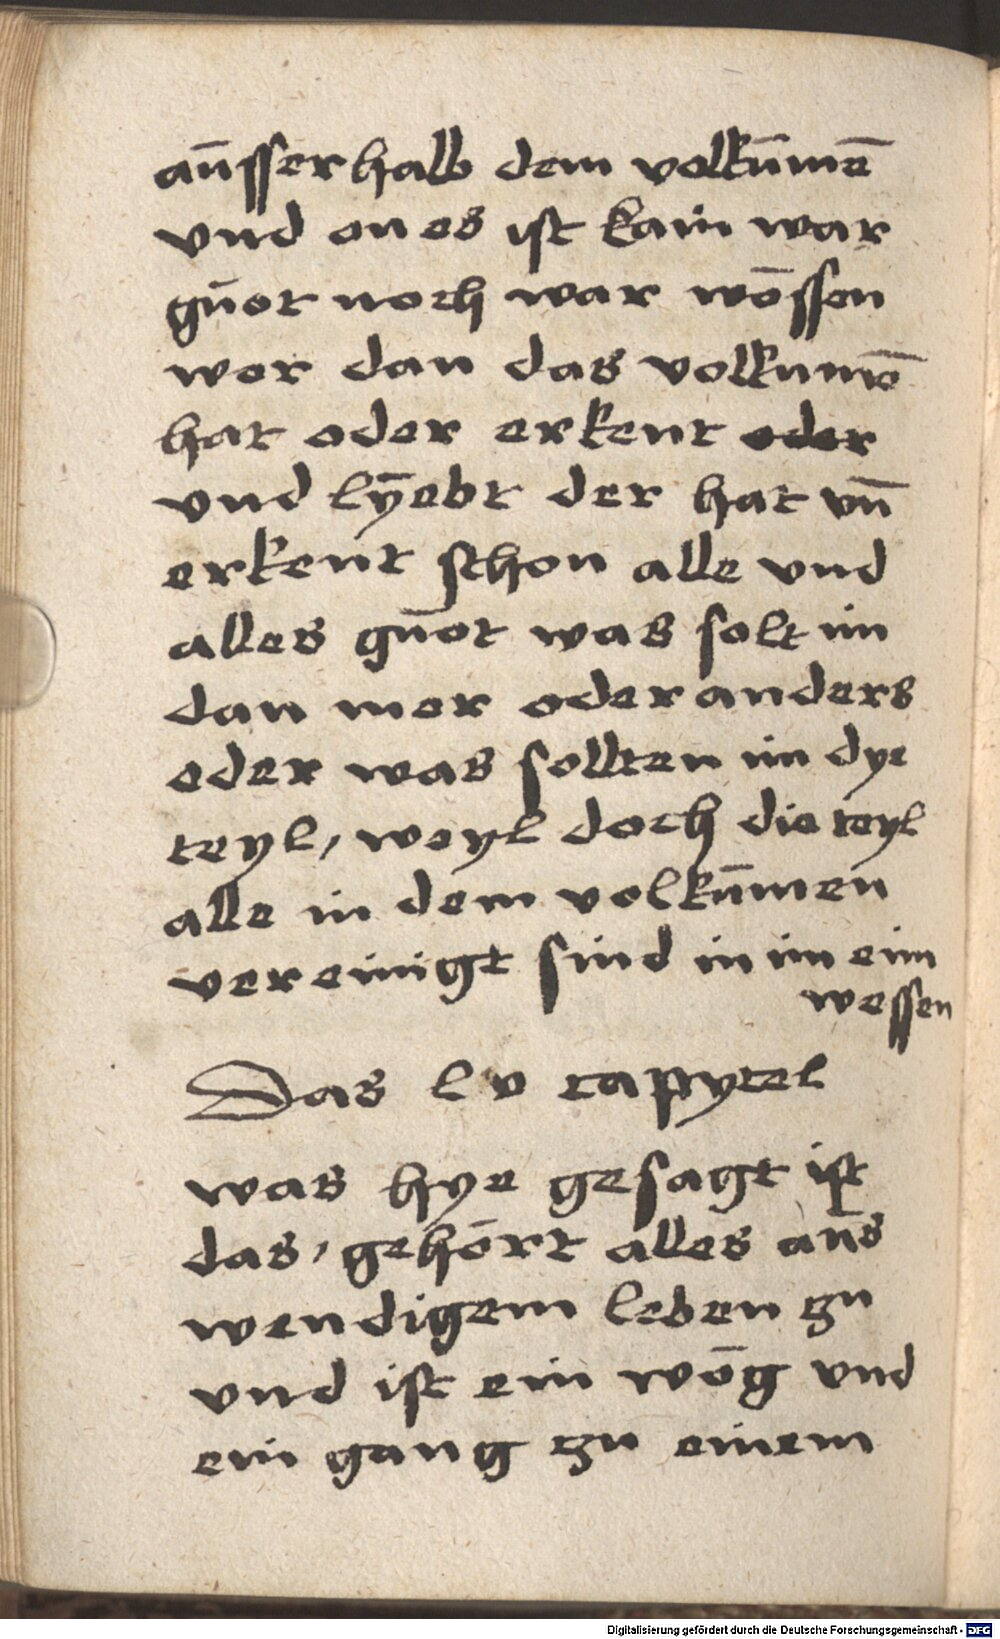 aūsserhalb dem volkūmē
vnd on es ist kain war
gūot noch war wōssen
wer dan das volkumē
hat oder erkent oder
vnd lȳebt der hat vn̄
erkent schon alle vnd
alles gūot was solt im
dan mer oder anders
oder was sollten im dye
teyl, weyl doch die teyl
alle in dem volkūmen
vereinigt sind in im eim
wessen
Das lv capytel
was hye gesagt ist
das, gehōrt alles aūs
wendigem leben zu
vnd ist ein wōg vnd
ein gang zu einem
Digitalisierung gefördert durch die Deutsche Forschungsgemeinschaft - DFG